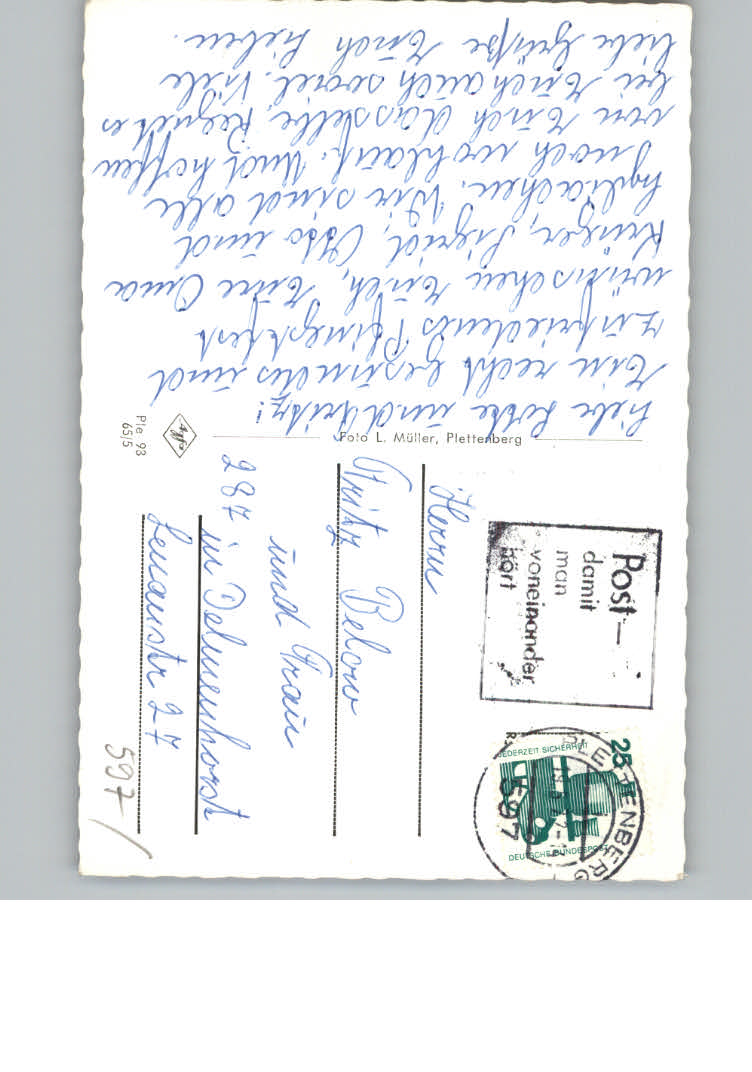 Liebe Lotte und Fritz!
Ein recht gesundes und
zufriedenes Pfingstfest
wünschen Euch, Eure Oma
Krüger, Sigrid, Otto und
. Wir sind alle
noch wohlauf. Und hoffen
von Euch dasselbe. Regnet es
bei Euch auch soviel. Viele
liebe Grüße Euch lieben.
Foto L. Müller, Plettenberg
Agfa
Ple 93
65/5
Post—
damit
man
voneinander
hört
PLETTENBERG
597
25
JEDERZEIT SICHERHEIT
DEUTSCHE BUNDESPOST
Herrn
Fritz Below
und Frau
287 in Delmenhorst
Lenaustr 27
597/